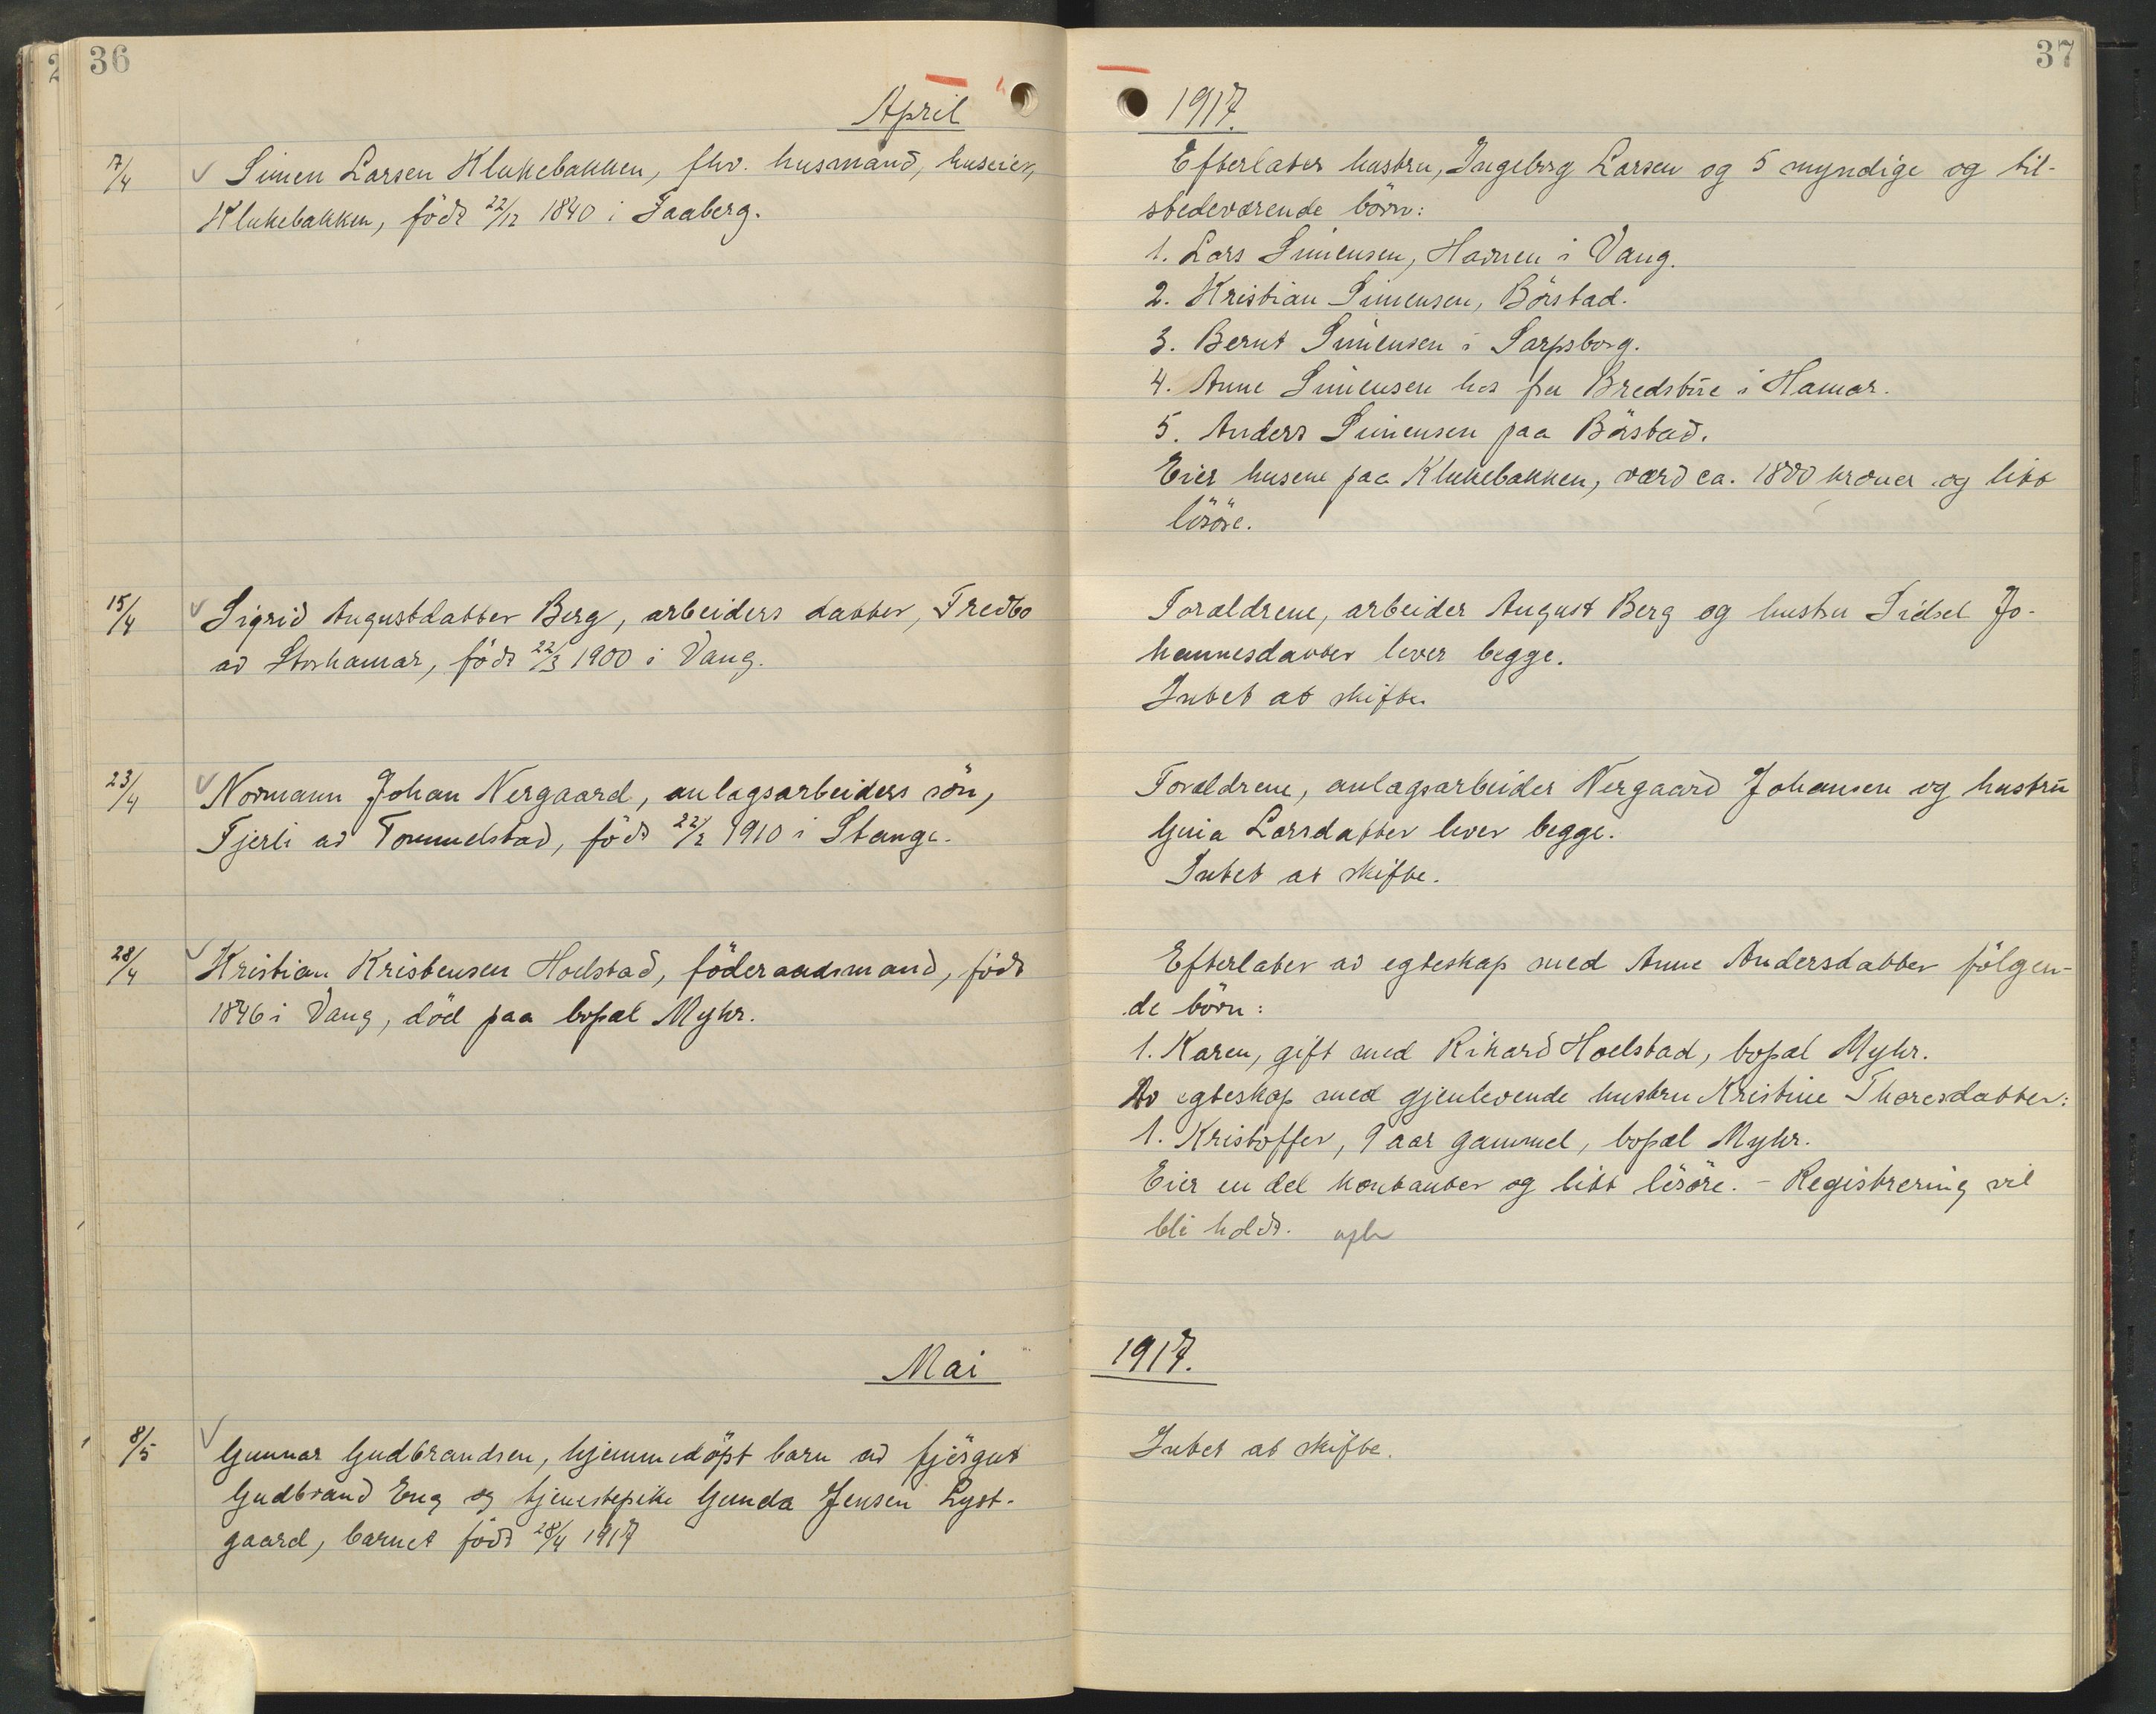 36
April
7/4 Simen Larsen Klukebakken, fhv. husmand, huseier,
Klukebakken, födt 22/12 1840 i Faaberg.
15/4 Sigrid Augustdatter Berg, arbeiders datter, Fredbo
av Storhamar, födt 22/3 1900 i Vang.
23/4 Normann Johan Nergaard, anlagsarbeiders sön,
Fjerli av Tommelstad, födt 22/2 1910 i Stange.
28/4 Kristian Kristensen Hoelstad, föderaadsmand, födt
1846 i Vang, död paa bopæl Myhr.
Mai
8/5 Gunnar Gudbrandsen, hjemmedöpt barn av fjösgut
Gudbrand Eng og tjenestepike Gunda Jensen Lyst-
gaard, barnet födt 28/4 1917
37
1917.
Efterlater hustru, Ingeborg Larsen og 5 myndige og til-
stedeværende börn:
1. Lars Simensen, Havnen i Vang.
2. Kristian Simensen, Börstad.
3. Bernt Simensen i Sarpsborg.
4. Anne Simensen hos fru Bredstue i Hamar.
5. Anders Simensen paa Börstad.
Eier husene paa Klukebakken, værd ca. 1800 kroner og litt
lösöre.
Forældrene, arbeider August Berg og hustru Sidsel Jo-
hannesdatter lever begge.
Intet at skifte.
Forældrene, anlagsarbeider Nergaard Johansen og hustru
Guia Larsdatter lever begge.
Intet at skifte.
Efterlater av egteskap med Anne Andersdatter fölgen-
de börn:
1. Karen, gift med Rikard Hoelstad, bopæl Myhr.
Av egteskap med gjenlevende hustru Kristine Thoresdatter:
1. Kristoffer, 9 aar gammel, bopæl Myhr.
Eier en del kontanter og litt lösöre. - Registrering vil
bli holdt.
1917.
Intet at skifte.